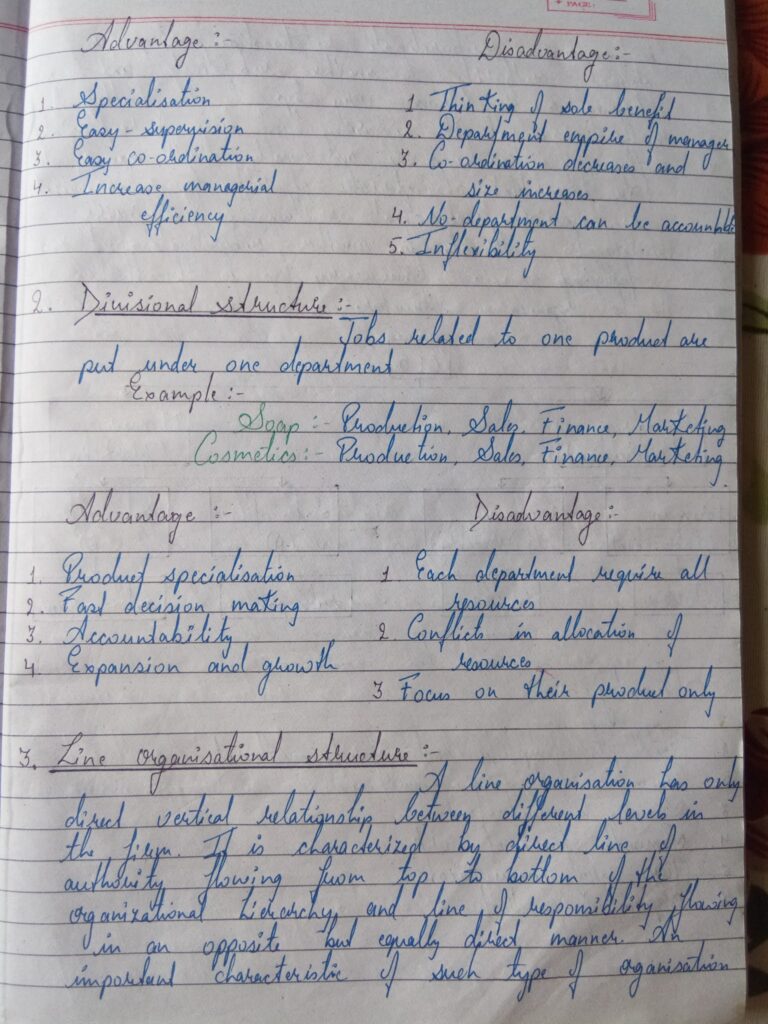 PAGE:
Advantage :-
Disadvantage :-
1. Specialisation
2. Easy-supervision
3. Easy co-ordination
4. Increase managerial
efficiency
1 Thinking of sole benefit
2. Department empire of manager
3. Co-ordination decreases and
size increases.
4. No-department can be accountable
5. Inflexibility
2. Divisional structure :-
Jobs related to one product are
put under one department
Example :-
Soap :- Production, Sales, Finance, Marketing
Cosmetics :- Production, Sales, Finance, Marketing.
Advantage :-
Disadvantage :-
1. Product specialisation
2. Fast decision making
3. Accountability
4. Expansion and growth
1 Each department require all
resources
2. Conflicts in allocation of
resources
3 Focus on their product only
3. Line organisational structure :-
A line organisation has only
direct vertical relationship between different levels in
the firm. It is characterized by direct line of
authority flowing from top to bottom of the
organizational hierarchy and line of responsibility flowing
in an opposite but equally direct manner. An
important characteristic of such type of organisation